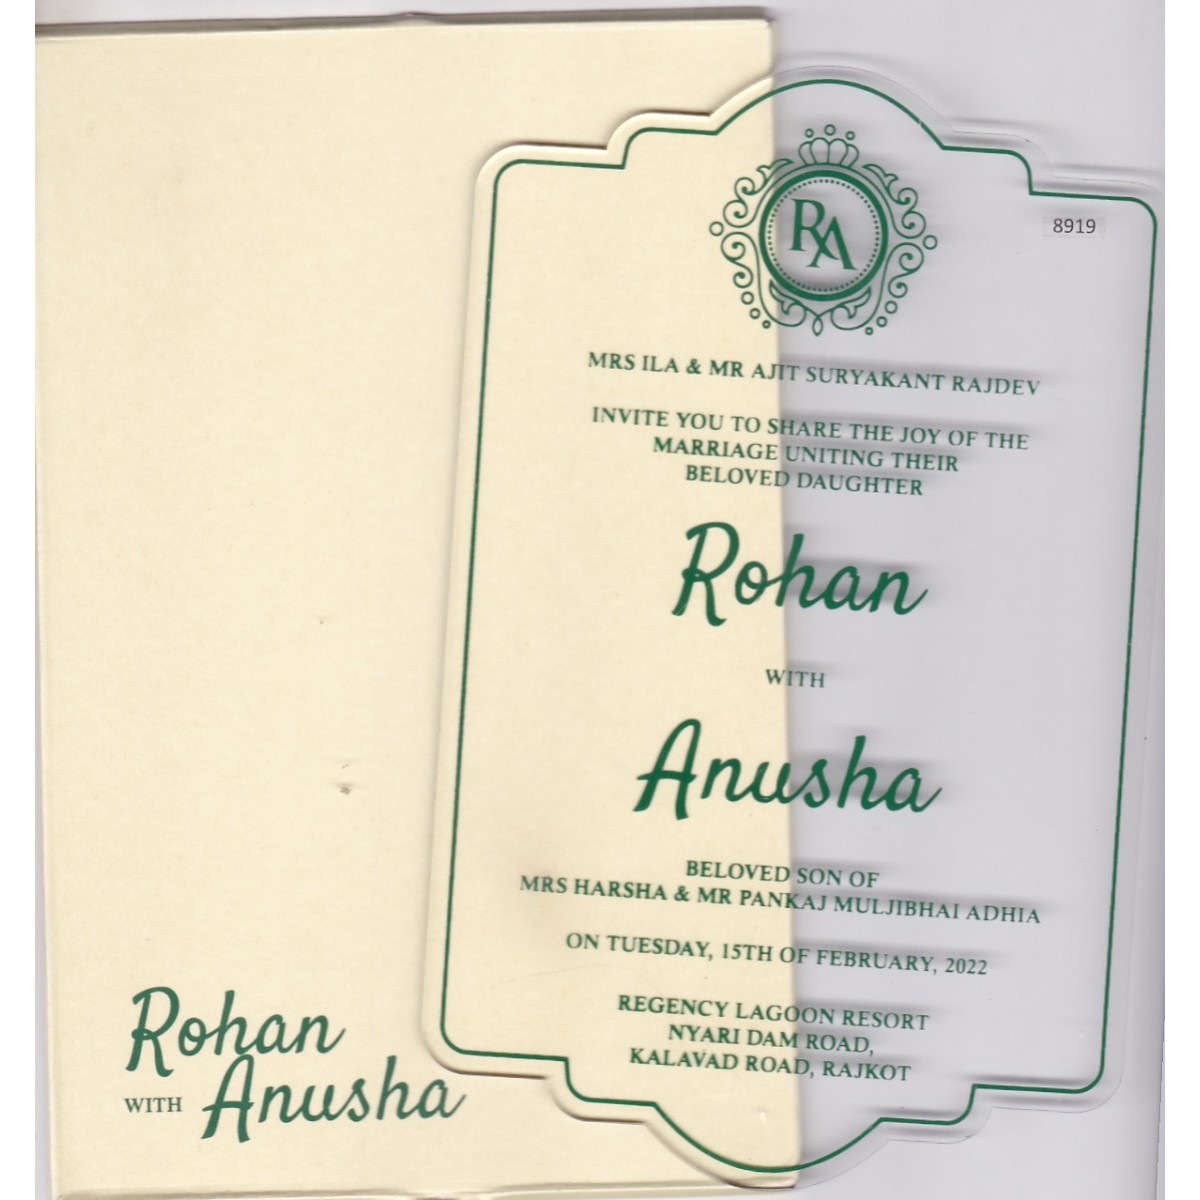 RA
8919
MRS ILA & MR AJIT SURYAKANT RAJDEV
INVITE YOU TO SHARE THE JOY OF THE
MARRIAGE UNITING THEIR
BELOVED DAUGHTER
Rohan
WITH
Anusha
BELOVED SON OF
MRS HARSHA & MR PANKAJ MULJIBHAI ADHIA
ON TUESDAY, 15TH OF FEBRUARY, 2022
REGENCY LAGOON RESORT
NYARI DAM ROAD,
KALAVAD ROAD, RAJKOT
Rohan
WITH Anusha